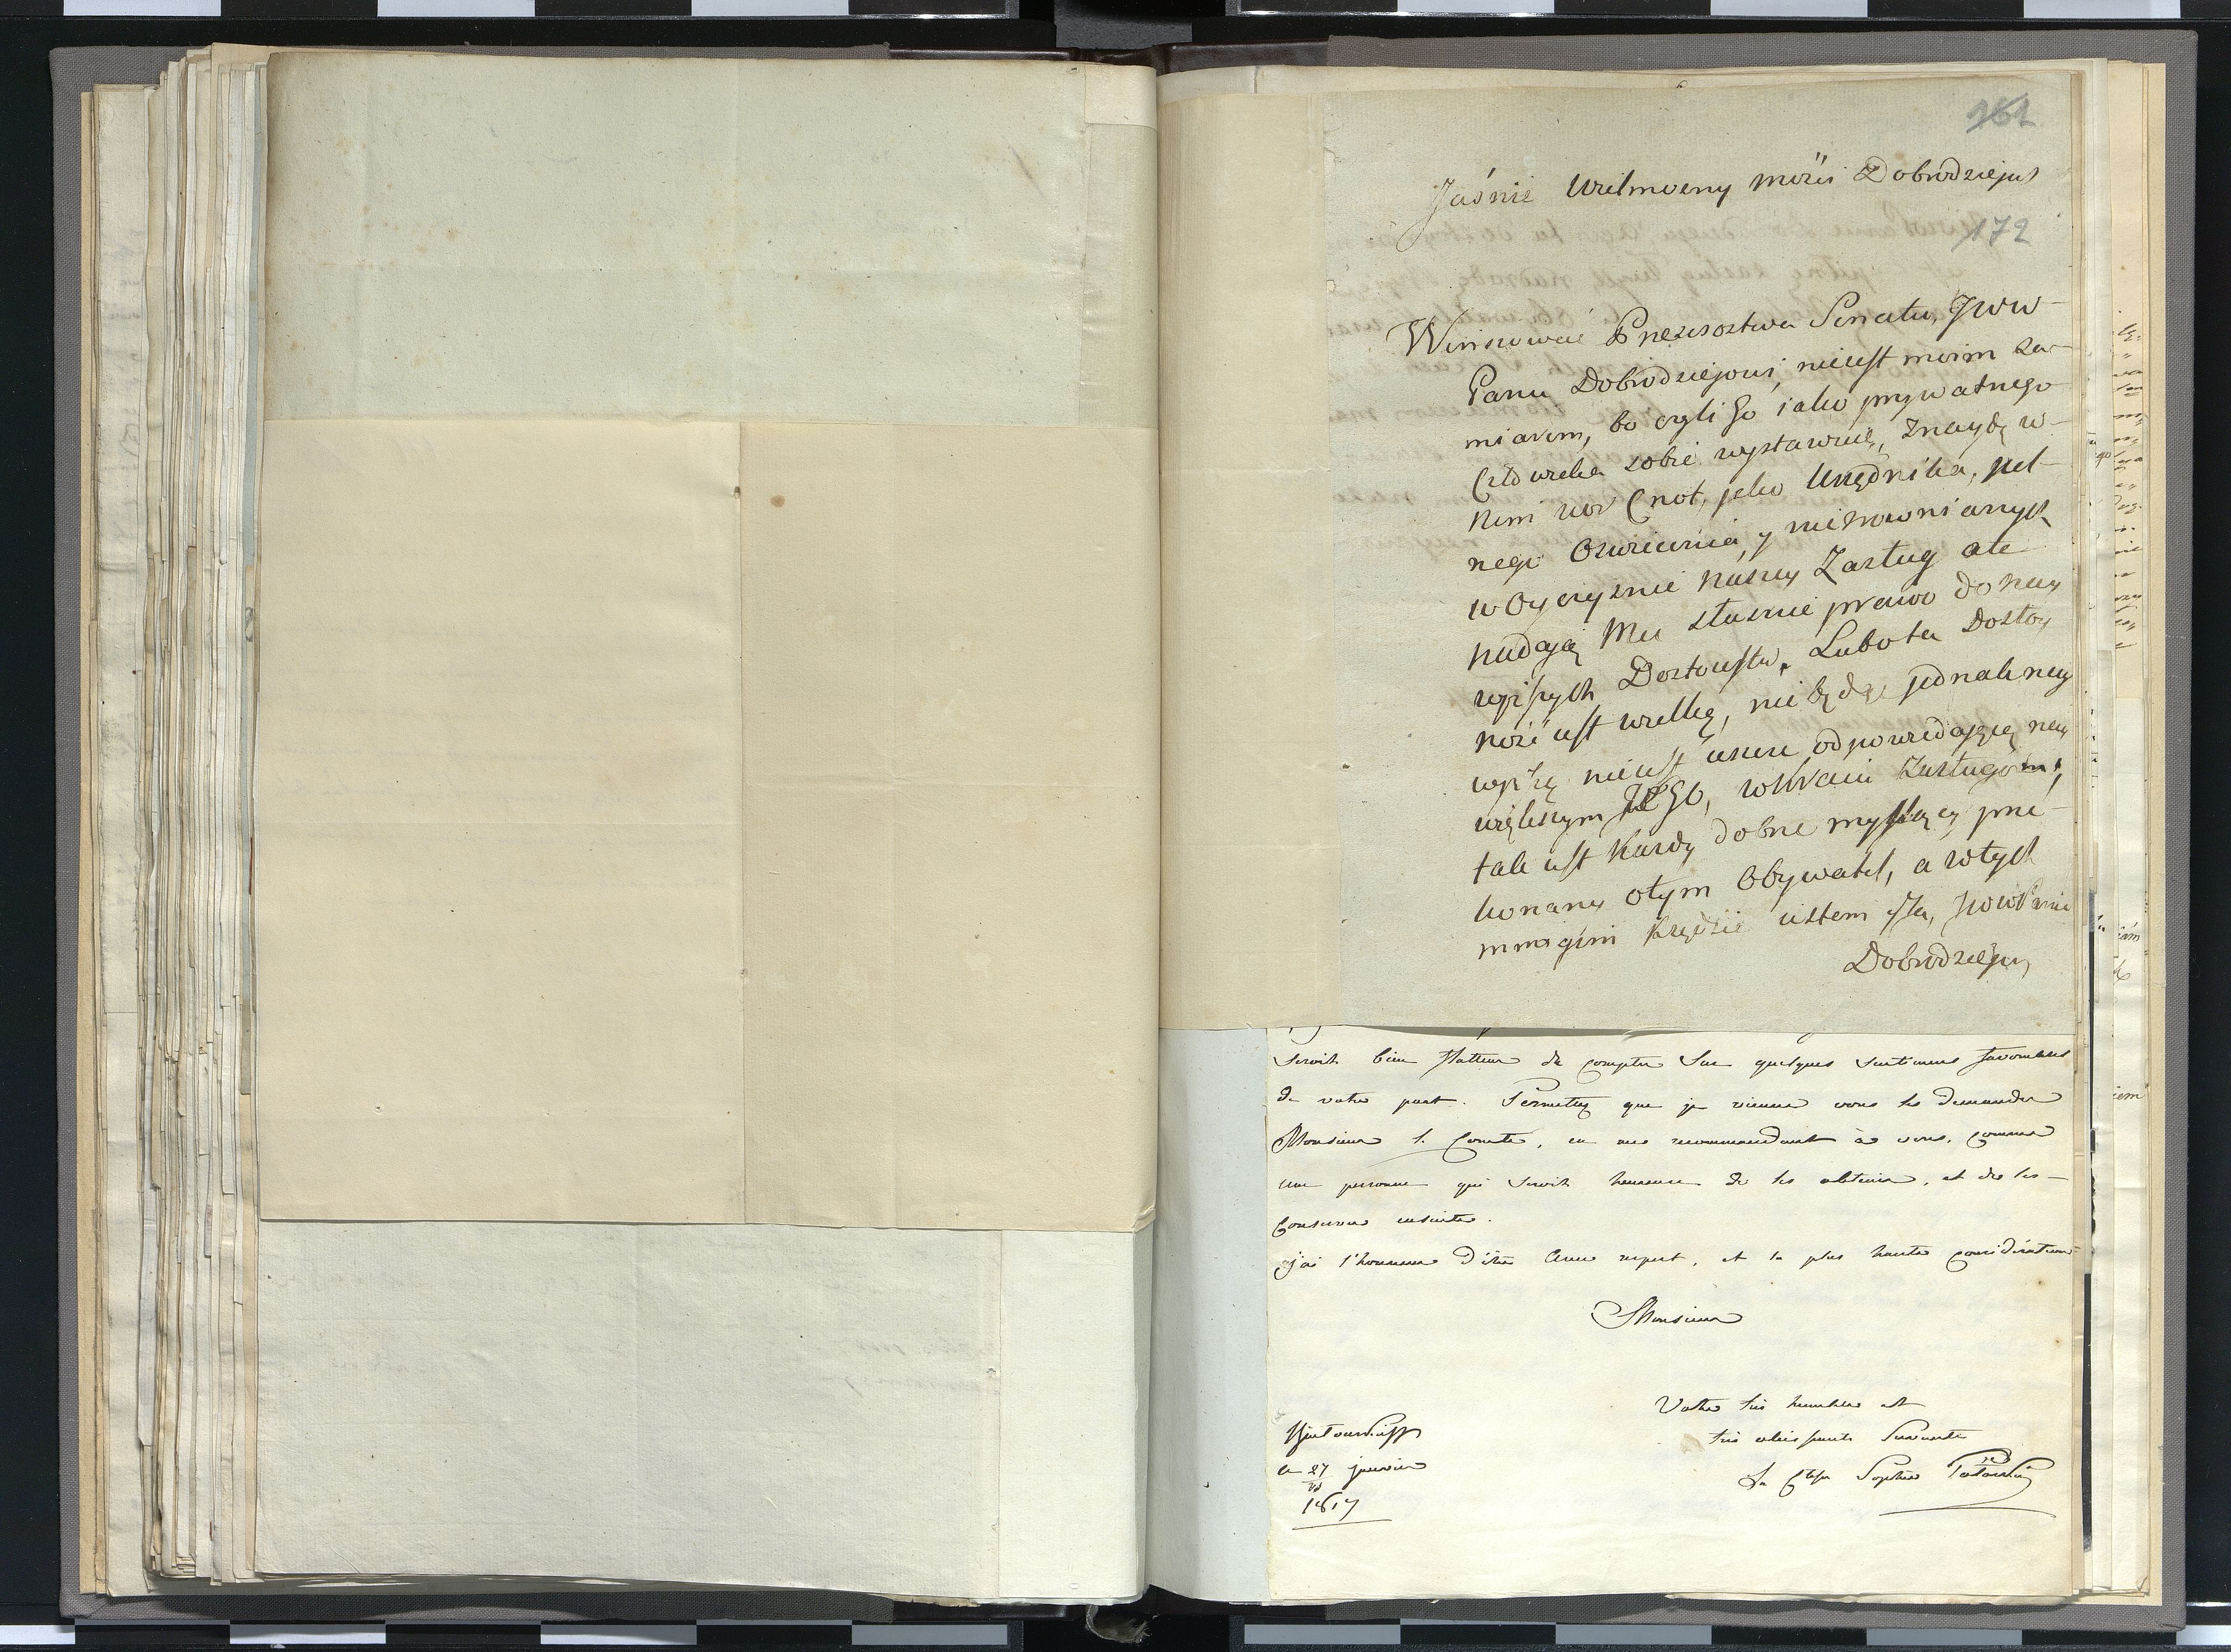 162
Jaśnie Wielmożny mości Dobrodzieju
172
Winszować Prezesostwa Senatu, JWW
Panu Dobrodziejowi, nieiest moim za-
miarem, bo czyli Go iako prywatnego
Człowieka sobie wystawuię, znaydę w-
nim wór Cnot, jako Urzędnika, peł-
nego Oswiecenia, y nieźrownianych
w Oyczyznie naszey Zasług ate
nadają Mu słusznie prawo do nay
wyższych Dostoieństw. Lubo ta Dostoy
ność iest wielką, nie będąc jednak nay
wyższą nieiest ieszcze odpowiedającą nay
większym JEGO, w Kraiu Zasługom,
tak iest każdy dobrze myślący prze-
konany otym Obywatel, a wtych
mnogim Rzędzie iestem y Ja, JWWPanie
Dobrodzieju,
seroit bien flatteur de compter sur quelques sentimens favorables
de votre part. Permettez que je vienne vous les demander
Monsieur le Comte, en me recommandant à vous, comme
une personne qui seroit heureuse de les obtenir, et de les
conserver ensuite.
j'ai l'honneur d'être avec respect, et la plus haute considération
Monsieur
Votre très humble et
très obeissante Servante
La Ctesse Sophie Potocka
le 27 janvier
1817